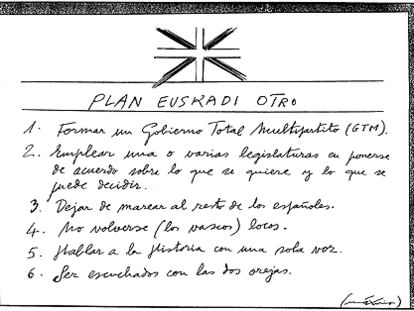 PLAN EUSKADI OTRO
1. Formar un Gobierno Total Multipartito (GTM).
2. Emplear una o varias legislaturas en ponerse
de acuerdo sobre lo que se quiere y lo que se
puede decidir.
3. Dejar de marear al resto de los españoles.
4. No volverse (los vascos) locos.
5. Hablar a la Historia con una sola voz.
6. Ser escuchados con las dos orejas.
(máximo)